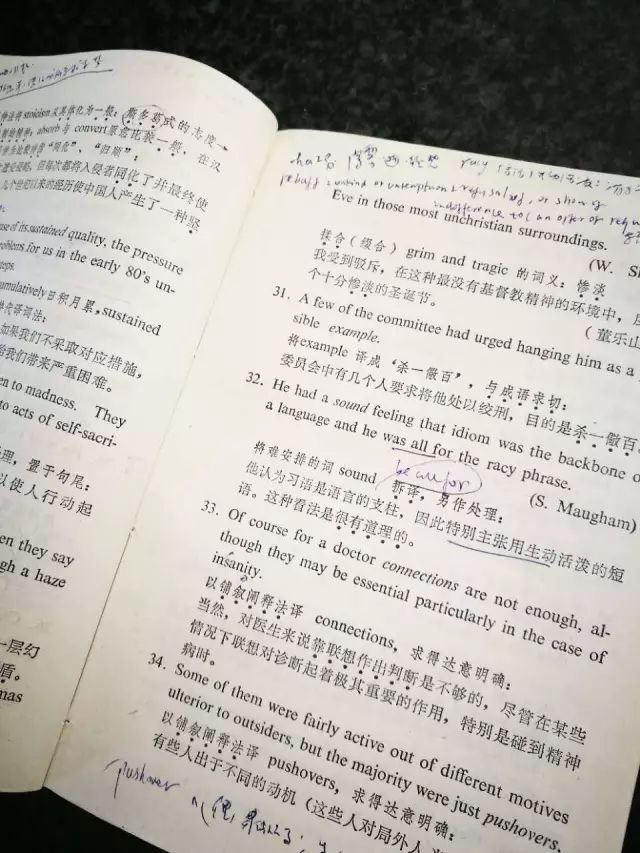 stoicism 及其转化为一般:撒多葛式的态度→
absorb 与 convert 原意范畴一般,在汉
"同化"、"归顺":
但每次都将入侵者同化了并最终使
几个世纪以来的经历使中国人产生了一种坚
use of its sustained quality, the pressure
problems for us in the early 80's un-
steps.
cumulatively 日积月累, sustained
如果我们不采取对应措施,
给我们带来严重困难。
en to madness. They
to acts of self-sacri-
理,置于句尾:
以使人行动起
en they say
gh a haze
一层幻
盾。
mas
haze 薄雾
rebuff unkind or
indifference to (an offer or requ
Eve in those most unchristian surroundings.
(W. Sh
揉合(缀合) grim and tragic 的词义:惨淡
我受到驳斥,在这种最没有基督教精神的环境中,
个十分惨淡的圣诞节。
(董乐山
31. A few of the committee had urged hanging him as a
sible example.
将example 译成"杀一儆百",与成语求切:
委员会中有几个人要求将他处以绞刑,目的是杀一儆百。
32. He had a sound feeling that idiom was the backbone o
a language and he was all for the racy phrase.
be all for
(S. Maugham)
将难安排的词 sound 拆译,另作处理:
他认为习语是语言的支柱,因此特别主张用生动活泼的短
语。这种看法是很有道理的。
33. Of course for a doctor connections are not enough, al-
though they may be essential particularly in the case of
insanity.
以铺叙阐释法译 connections, 求得达意明确:
当然,对医生来说靠联想作出判断是不够的,尽管在某些
情况下联想对诊断起着极其重要的作用,特别是碰到精神
病时。
34. Some of them were fairly active out of different motives
ulterior to outsiders, but the majority were just pushovers,
以铺叙阐释法译 pushovers, 求得达意明确:
有些人出于不同的动机(这些人对局外人
pushover